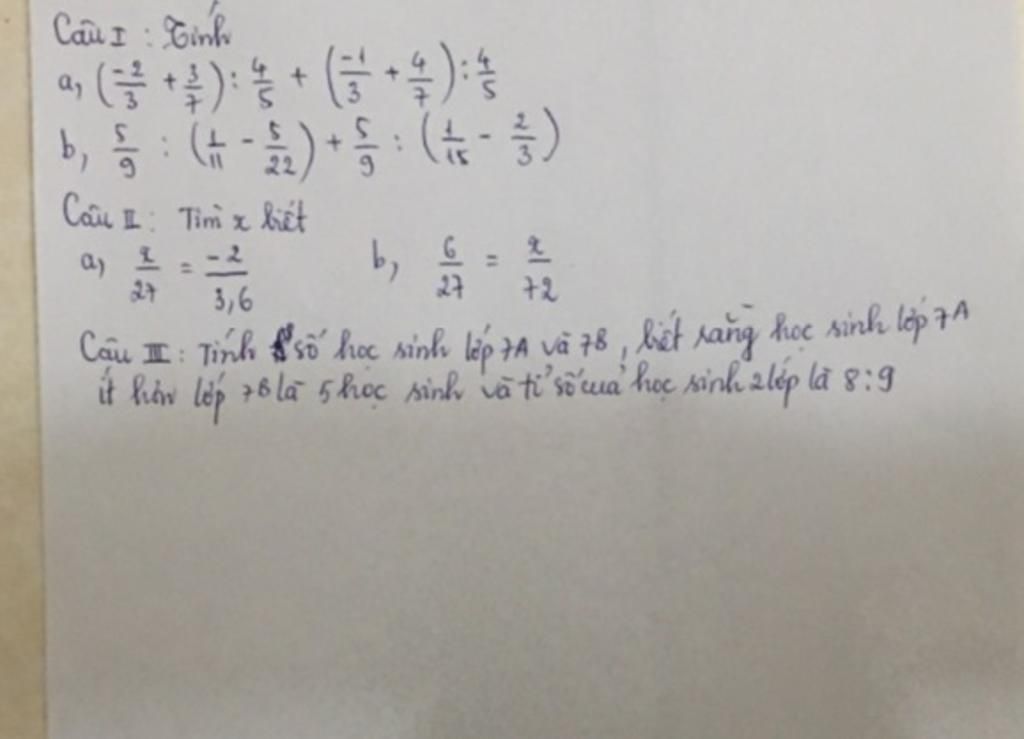 Câu I : Tính
a, (-2/3 + 3/7) : 4/5 + (-1/3 + 4/7) : 4/5
b, 5/9 : (1/11 - 5/22) + 5/9 : (1/15 - 2/3)
Câu II : Tìm x biết
a, x/27 = -2/3,6 b, 6/27 = x/72
Câu III : Tính số học sinh lớp 7A và 7B, biết rằng học sinh lớp 7A
ít hơn lớp 7B là 5 học sinh và tỉ số của học sinh 2 lớp là 8 : 9